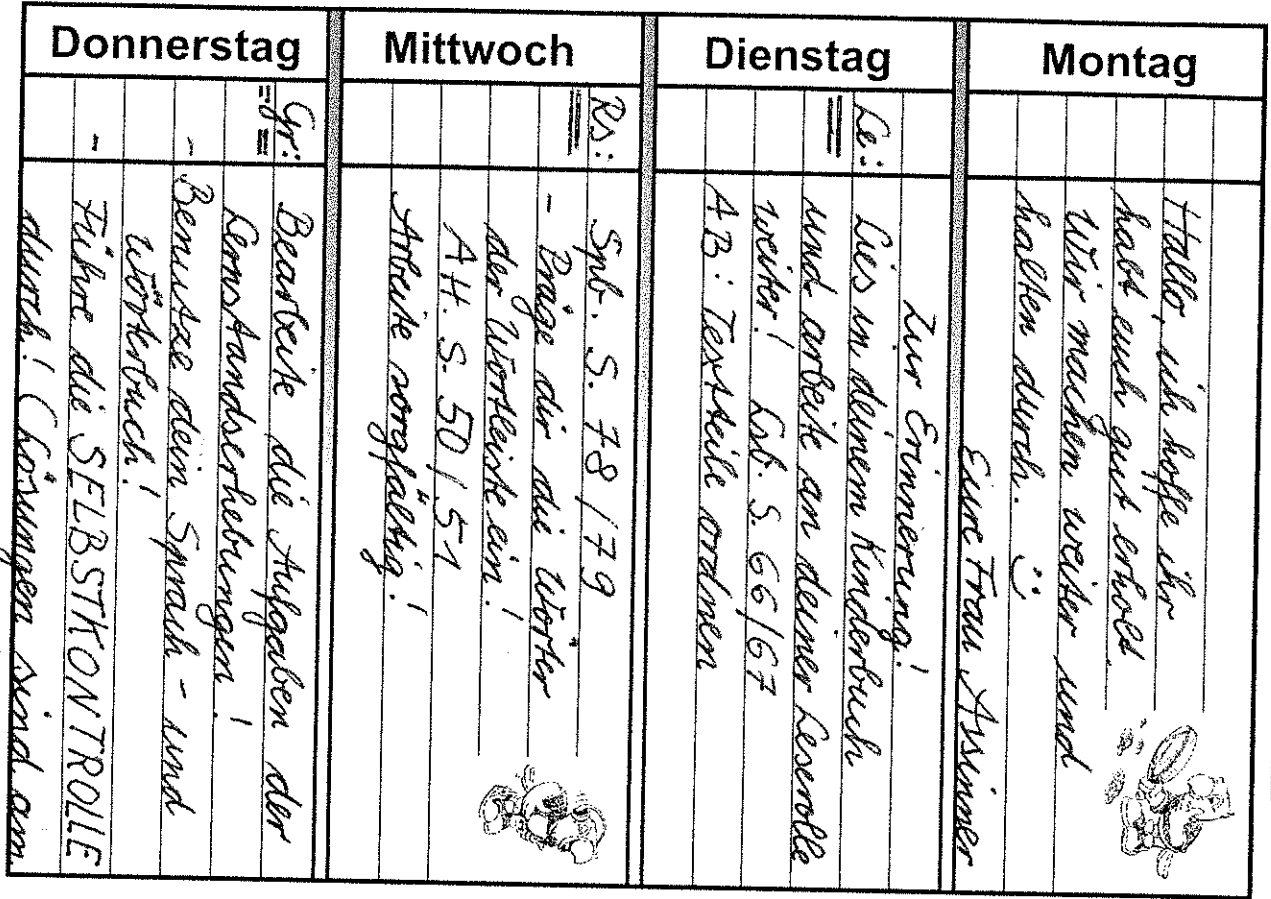 Montag
Hallo, ich hoffe ihr
habt euch gut erholt.
Wir machen weiter und
halten durch. :)
Eure Frau Assinner
Dienstag
Zur Erinnerung!
Le: Lies in deinem Kinderbuch
und arbeite an deiner Leserolle
weiter! Lsb. S. 66/67
AB: Textteile ordnen
Mittwoch
Rs: Spb. S. 78/79
- Präge dir die Wörter
der Wortleiste ein!
AH. S. 50/51
Arbeite sorgfältig!
Donnerstag
Gr: Bearbeite die Aufgaben der
Lernstandserhebungen!
- Benutze dein Sprach- und
Wörterbuch!
- Führe die SELBSTKONTROLLE
durch! (Lösungen sind am